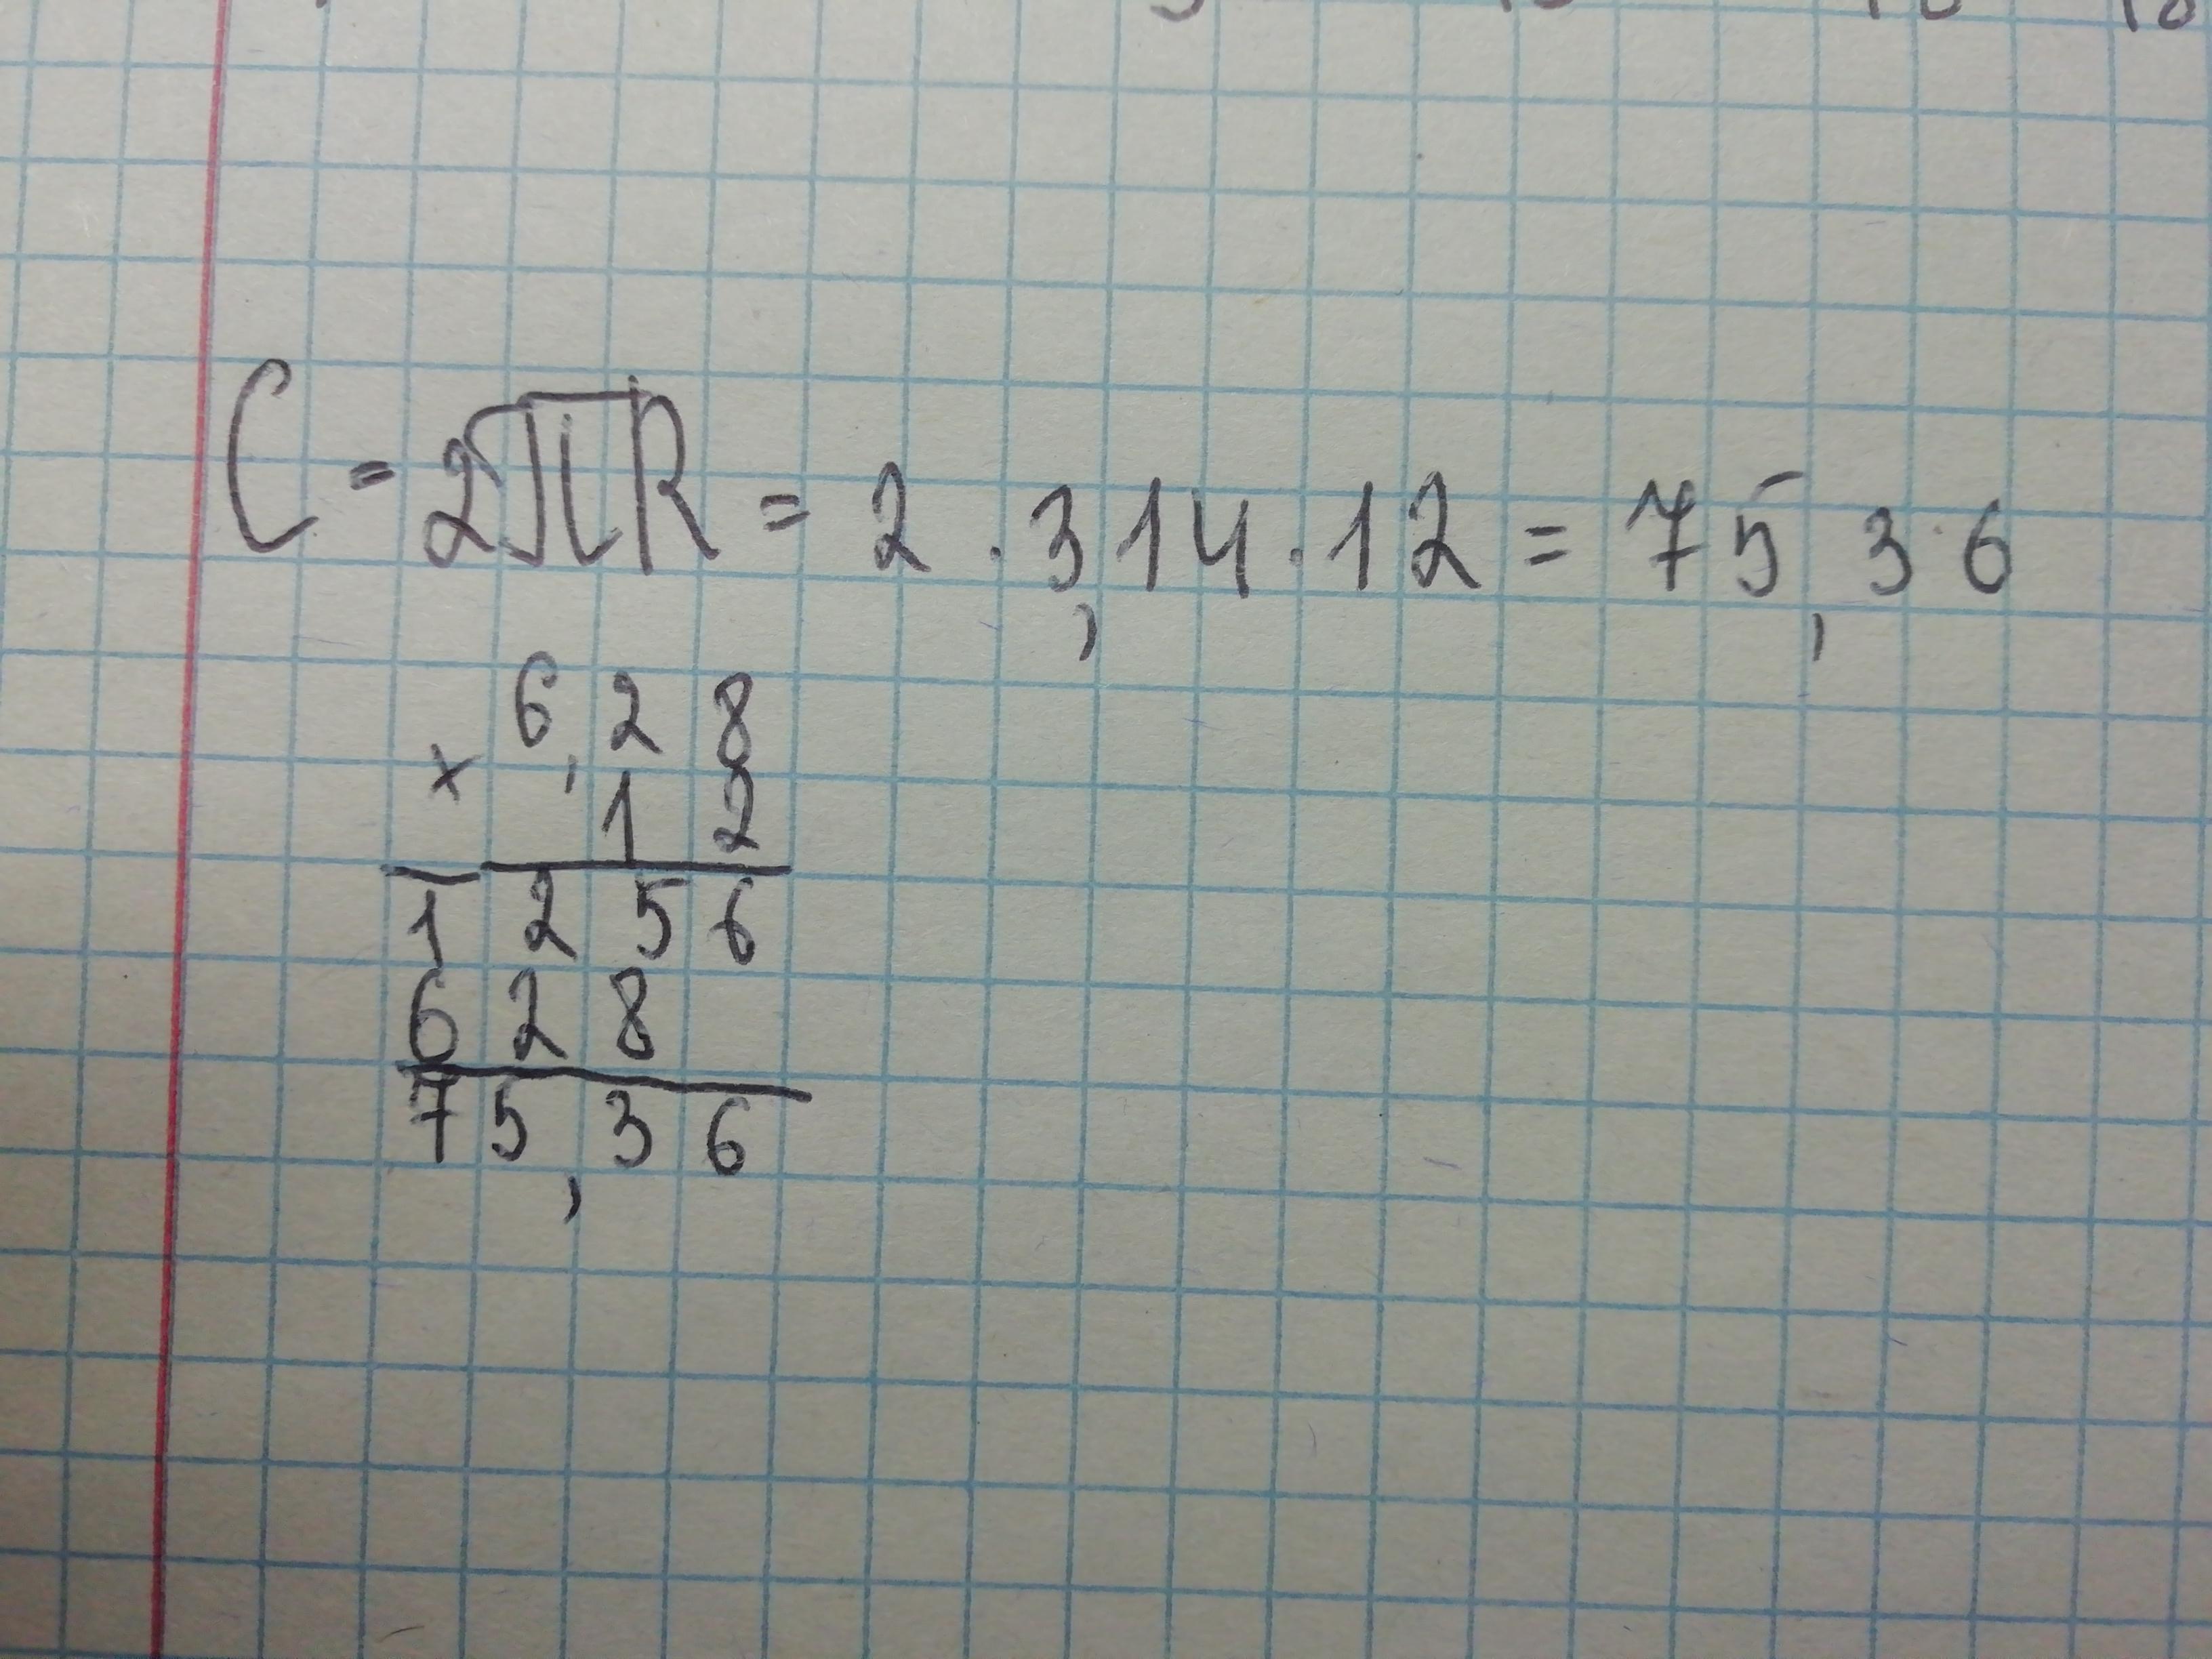 C = 2πR = 2 · 3,14 · 12 = 75,36
6,28
× 12
1256
628
75,36